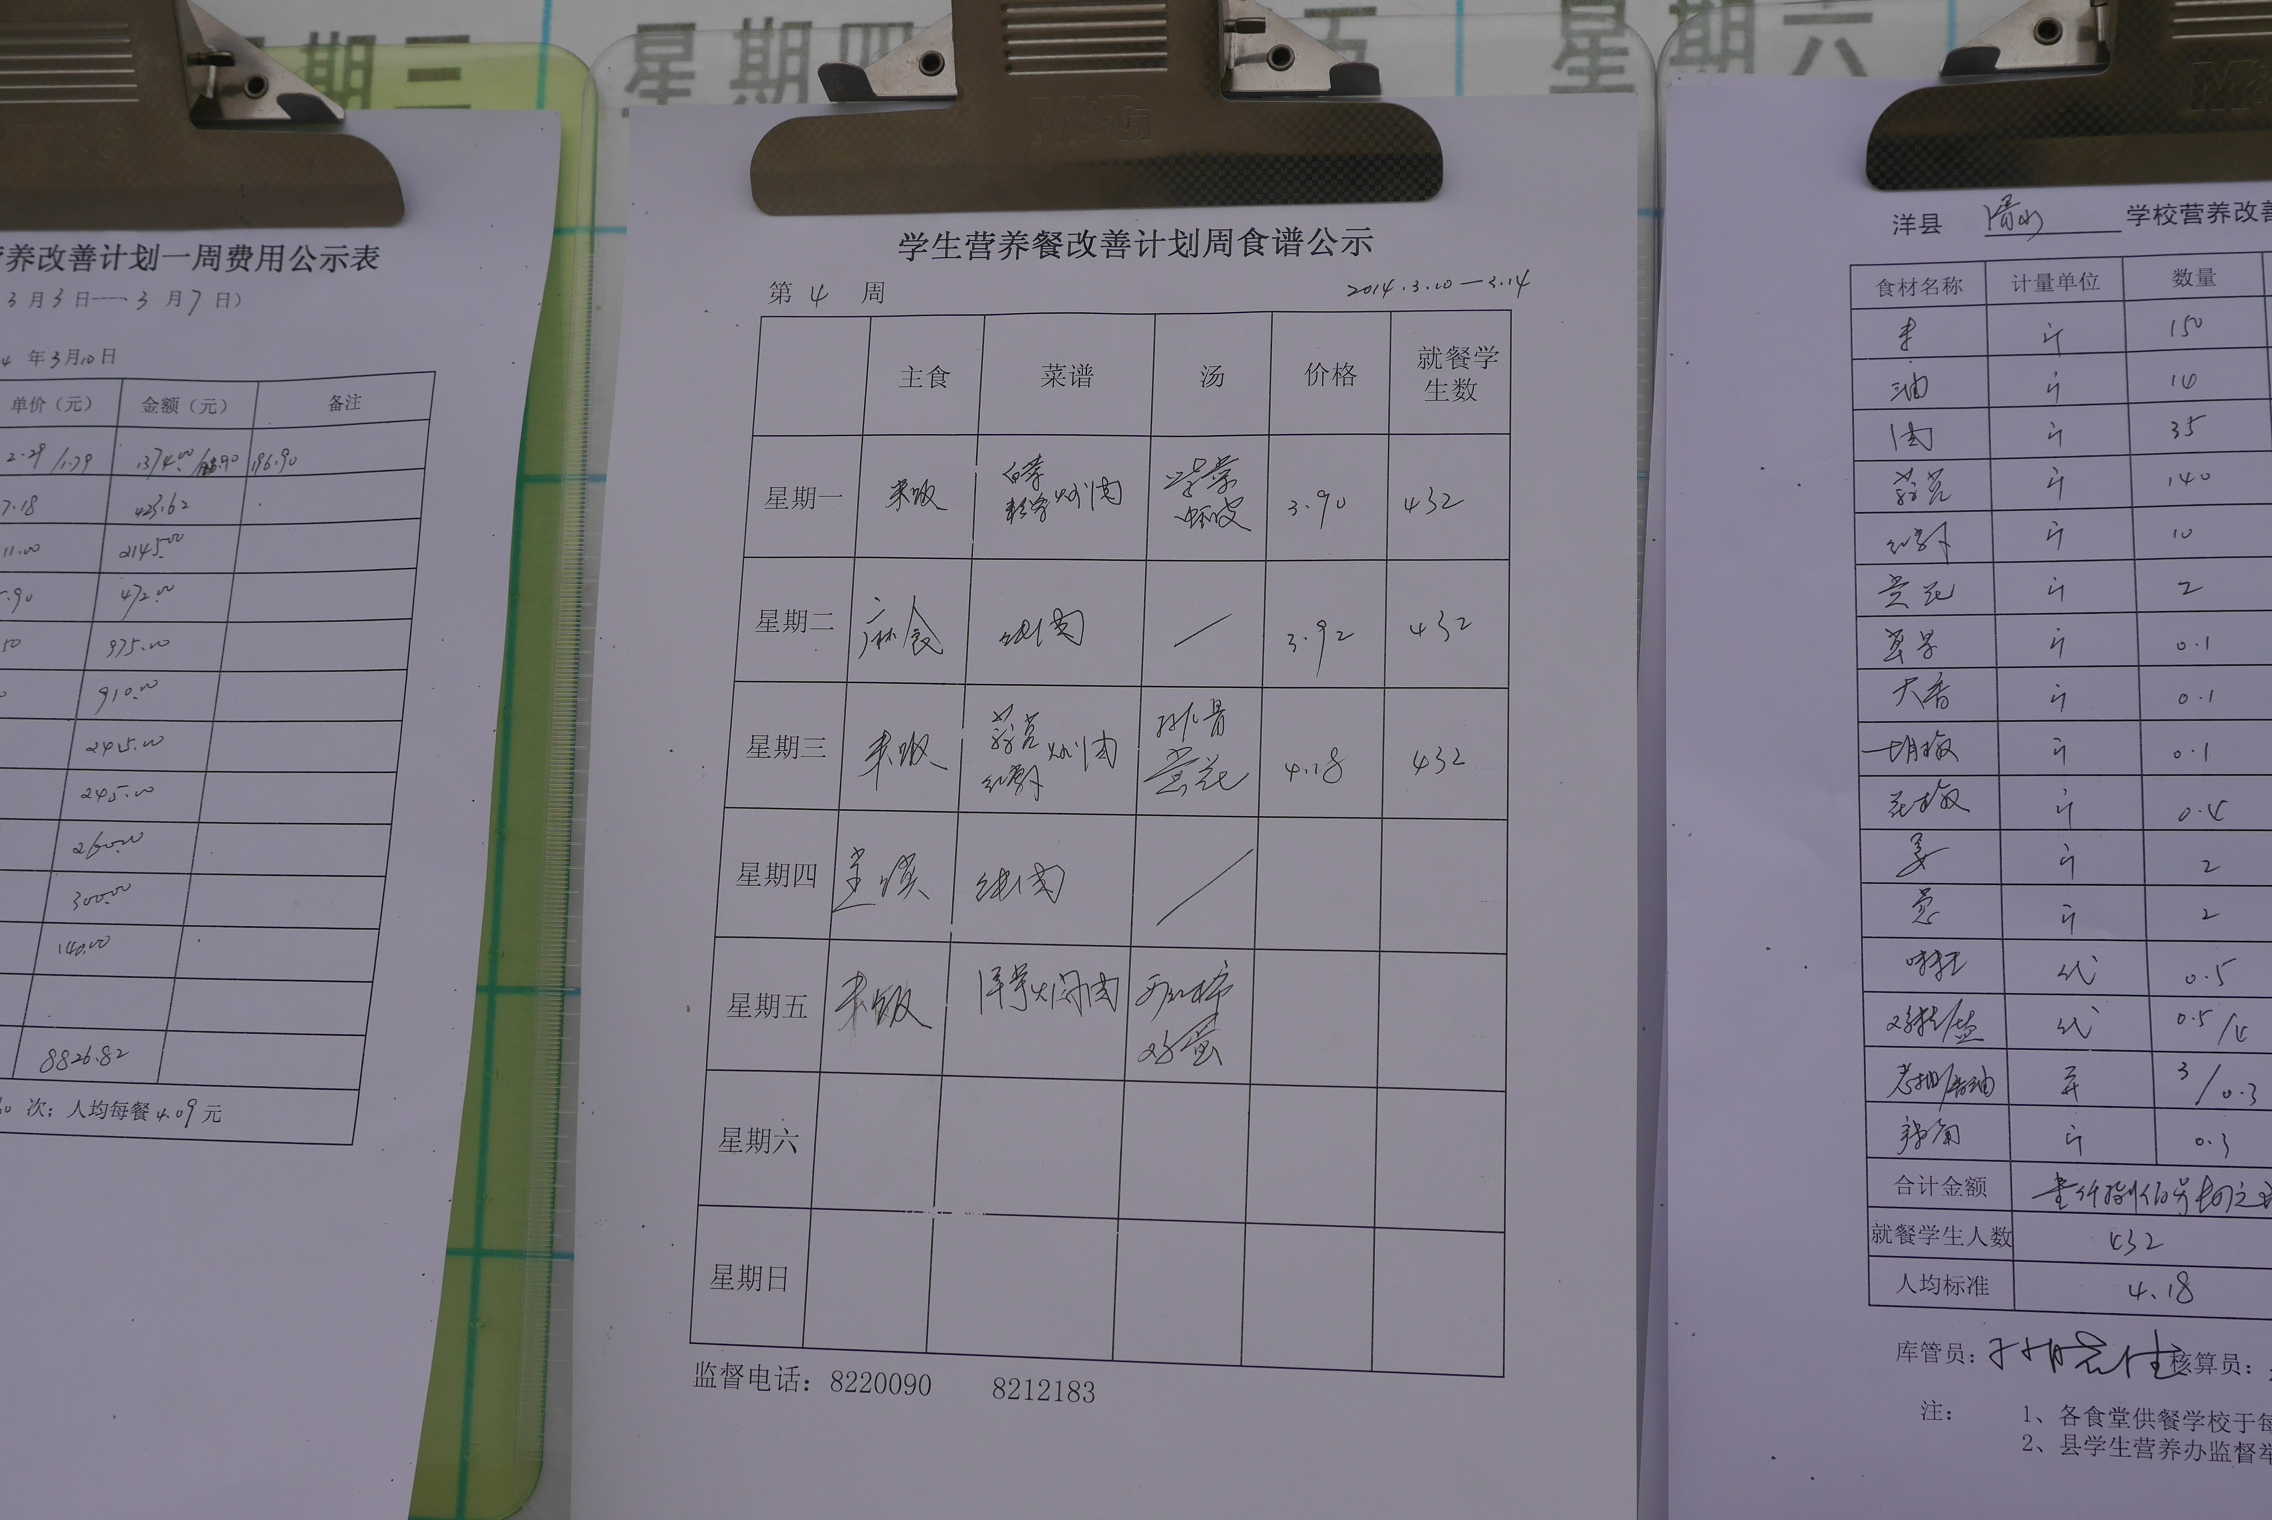 星期三
星期四
五
星期六
M&G
养改善计划一周费用公示表
3月3日——3月7日）
4 年3月10日
单价（元） 金额（元） 备注
2.29/1.79 1374.00/ 196.90
7.18 423.62
11.00 2145.00
.90 472.00
50 975.00
910.00
2405.00
245.00
260.00
300.00
140.00
8826.82
次；人均每餐4.09元
学生营养餐改善计划周食谱公示
第 4 周 2014.3.10—3.14
主食 菜谱 汤 价格 就餐学
生数
星期一 米饭 炒肉 3.90 432
星期二 麻食 肉 / 3.92 432
星期三 米饭 蒜苔红萝卜炒肉 排骨黄花 4.18 432
星期四 肉 /
星期五 米饭 洋芋焖肉 西红柿鸡蛋
星期六
星期日
监督电话：8220090 8212183
洋县 学校营养改善
食材名称 计量单位 数量
米 斤 150
油 斤 10
肉 斤 35
蒜苔 斤 140
红萝卜 斤 10
黄花 斤 2
草果 斤 0.1
大香 斤 0.1
胡椒 斤 0.1
花椒 斤 0.4
姜 斤 2
葱 斤 2
味精 代 0.5
鸡精/盐 代 0.5/4
老抽/香油 3/0.3
辣角 斤 0.3
合计金额 壹仟捌佰
就餐学生人数 432
人均标准 4.18
库管员： 核算员：
注： 1、各食堂供餐学校于每
2、县学生营养办监督举